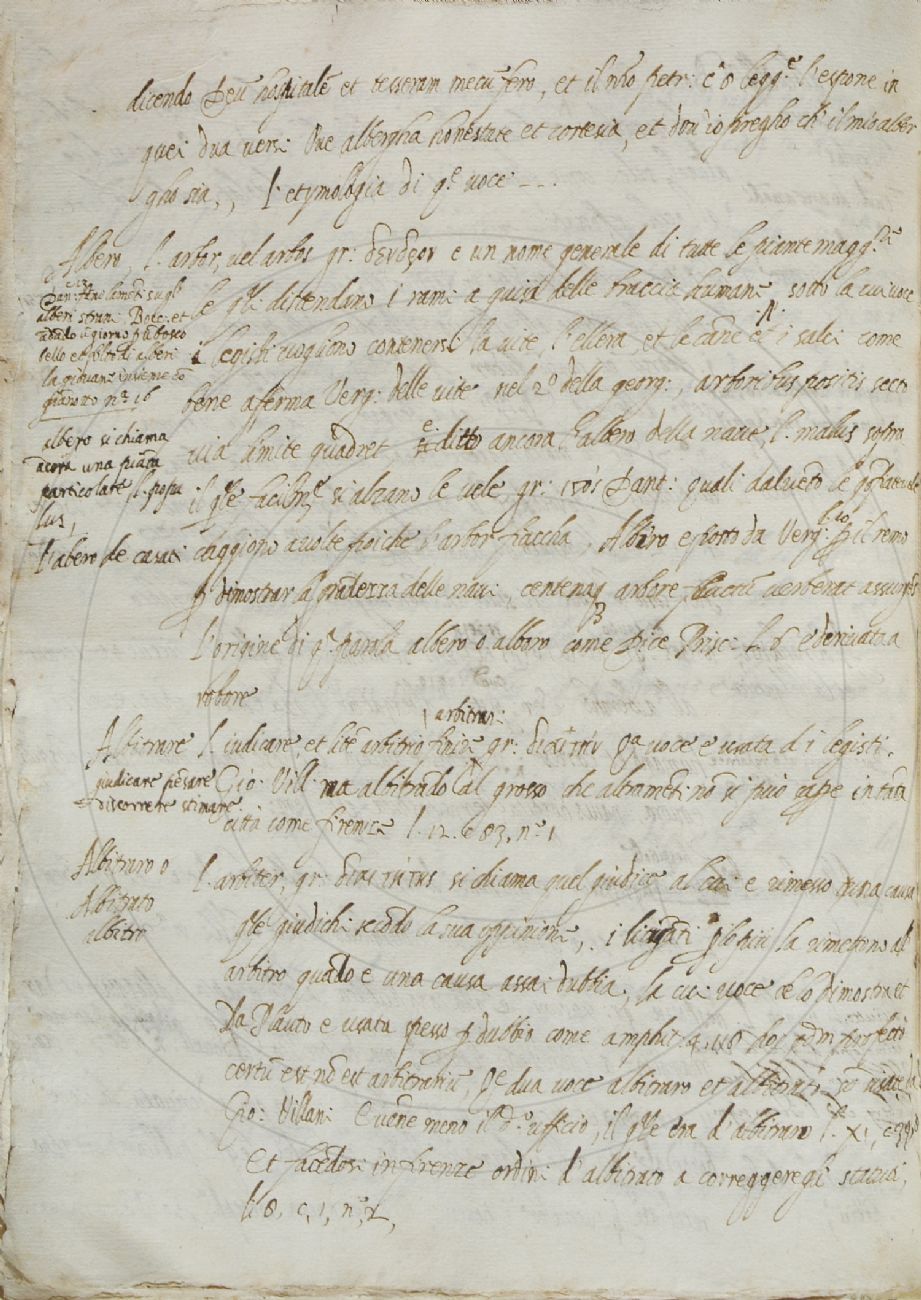 dicendo Deū hospitalē et tesseram mecū fero, et il nro petr: c 8 legg.e l'espone in
quei dua versi Ove albergha honestate et cortesia, et dou' io pregho ch' il mio alber
gho sia,, l'etymologia di q.e voce ---
Albero, l. arbor, vel arbos gr: δενδρον e un nome generale di tutte le piante magg.ri
le q̄li distendono i rami a guisa delle braccia humane sotto la cui voce
i legisti vogliono contenersi la vite, l'ellera et le canne et i salci come
bene aferma Verg: delle vite nel 2.o della georg:, arboribus positis secto
via limite quadret e ditto ancora l'albero della nave l. malus sopra
il q̄le facilm.e si alzano le vele, gr: ιστός Dant: quali dal vento le gonfiate vele
caggiono avolte poiche l'arbor fiaccha, Albero e posto da Verg: p il remo
p dimostrar la grādezza delle navi, centenaq arbore fluctū verberat assurgēs
l'origine di q.a parola albero o alboro come dice Prisc: L 6 e derivata a
robore
Dan: Ave lamēti su gl
alberi strani Bocc: et
andādo ū giorno p ū bosco
cello et folto di alberi
la giovane insieme cō
gianotto n.o 16
albero si chiama
ācora una pianta
particolare l. popu
lus,
l'abero de casati
arbitrari
Albitrare l. iudicare et litē arbitrio finire gr: διαιτᾶν q.a voce e usata d i legisti.
giudicare pēsare
discorrere stimare
Gio: Vill: ma albitrādo al grosso che altramēti nō si può sapere in tāta
città come firenze l. 12. c 83, n.o 1
Albitraro o
Albitrato
albitro
l. arbiter, gr: διαιτητὴς si chiama quel giudice al cui e rimesso una causa
q̄le giudichi secōdo la sua oppinione, i litigāti p lo più la rimettono al
arbitro quādo e una causa assai dubbia, la cui voce ce lo dimostra et
Da Plauto e usata spesso p dubbio come amphit: hoc qdm profecto
certū est nō est arbitrariū, q.e dua voce albitraro et albitrati
Gio: Villani E venne meno il d.o ufficio, il q̄le era d'albitraro l. XI, c 39
Et facēdosi in firenze ordine d'albitrato a correggere gli statuti,
li 8, c, 1, n.o 2,